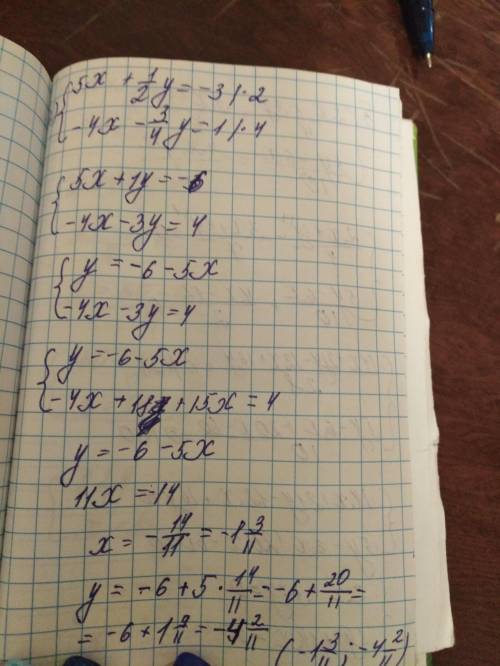 {5x + 1/2 y = -3 | · 2
{-4x - 3/4 y = 1 | · 4
{5x + 1y = -6
{-4x - 3y = 4
{y = -6 - 5x
{-4x - 3y = 4
{y = -6 - 5x
{-4x + 18 + 15x = 4
y = -6 - 5x
11x = -14
x = - 14/11 = -1 3/11
y = -6 + 5 · 14/11 = -6 + 20/11 =
= -6 + 1 9/11 = -4 2/11
(-1 3/11; -4 2/11)